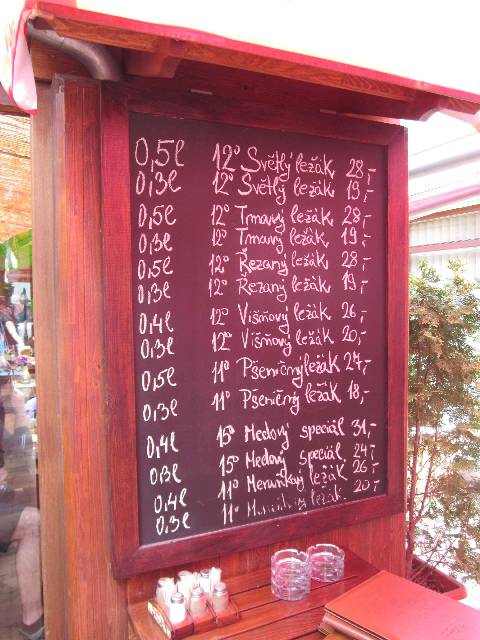 0,5l 12° Světlý ležák 28,-
0,3l 12° Světlý ležák 19,-
0,5l 12° Tmavý ležák 28,-
0,3l 12° Tmavý ležák 19,-
0,5l 12° Řezaný ležák 28,-
0,3l 12° Řezaný ležák 19,-
0,4l 12° Višňový ležák 26,-
0,3l 12° Višňový ležák 20,-
0,5l 11° Pšeničný ležák 27,-
0,3l 11° Pšeničný ležák 18,-
0,4l 15° Medový speciál 31,-
0,3l 15° Medový speciál 24,-
0,4l 11° Meruňkový ležák 26,-
0,3l 11° Meruňkový ležák 20,-